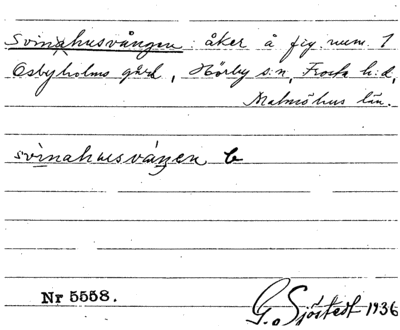 Svinahusvången: åker å fig. num. 1
Osbyholms gård, Hörby s:n, Frosta h:d,
Malmöhus län.
svinahusváŋen
Nr 5558.
G. Sjöstedt 1936